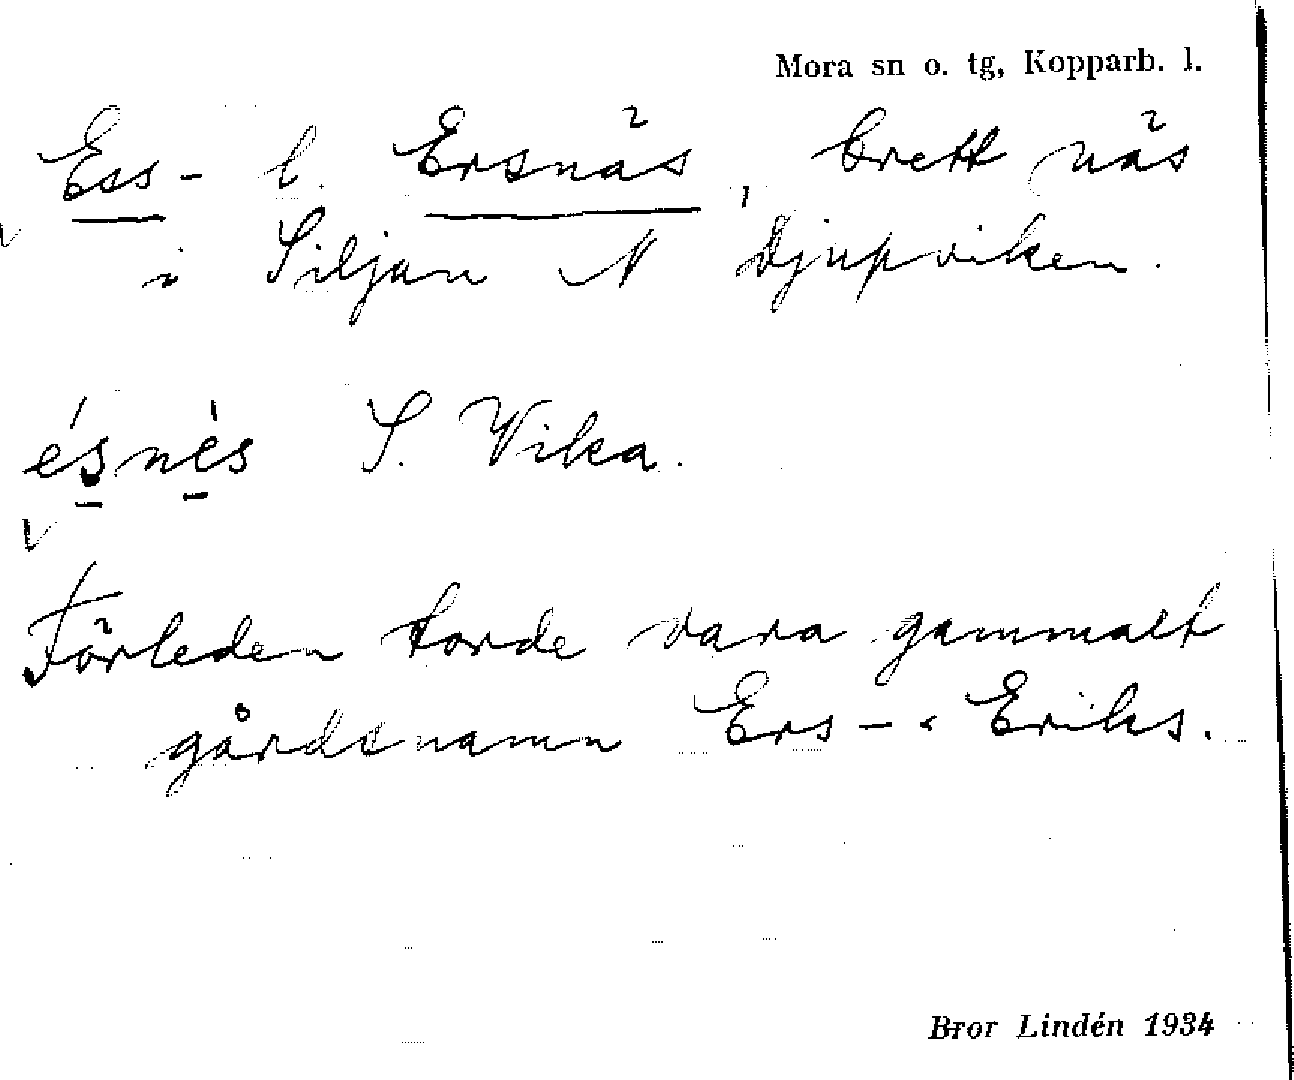 Mora sn o. tg, Kopparb. l.
Ess- l. Ersnäs, brett näs
i Siljan N Djupviken.
ésnès S. Vika.
Förleden torde vara gammalt
gårdsnamn Ers- < Eriks.
Bror Lindén 1934